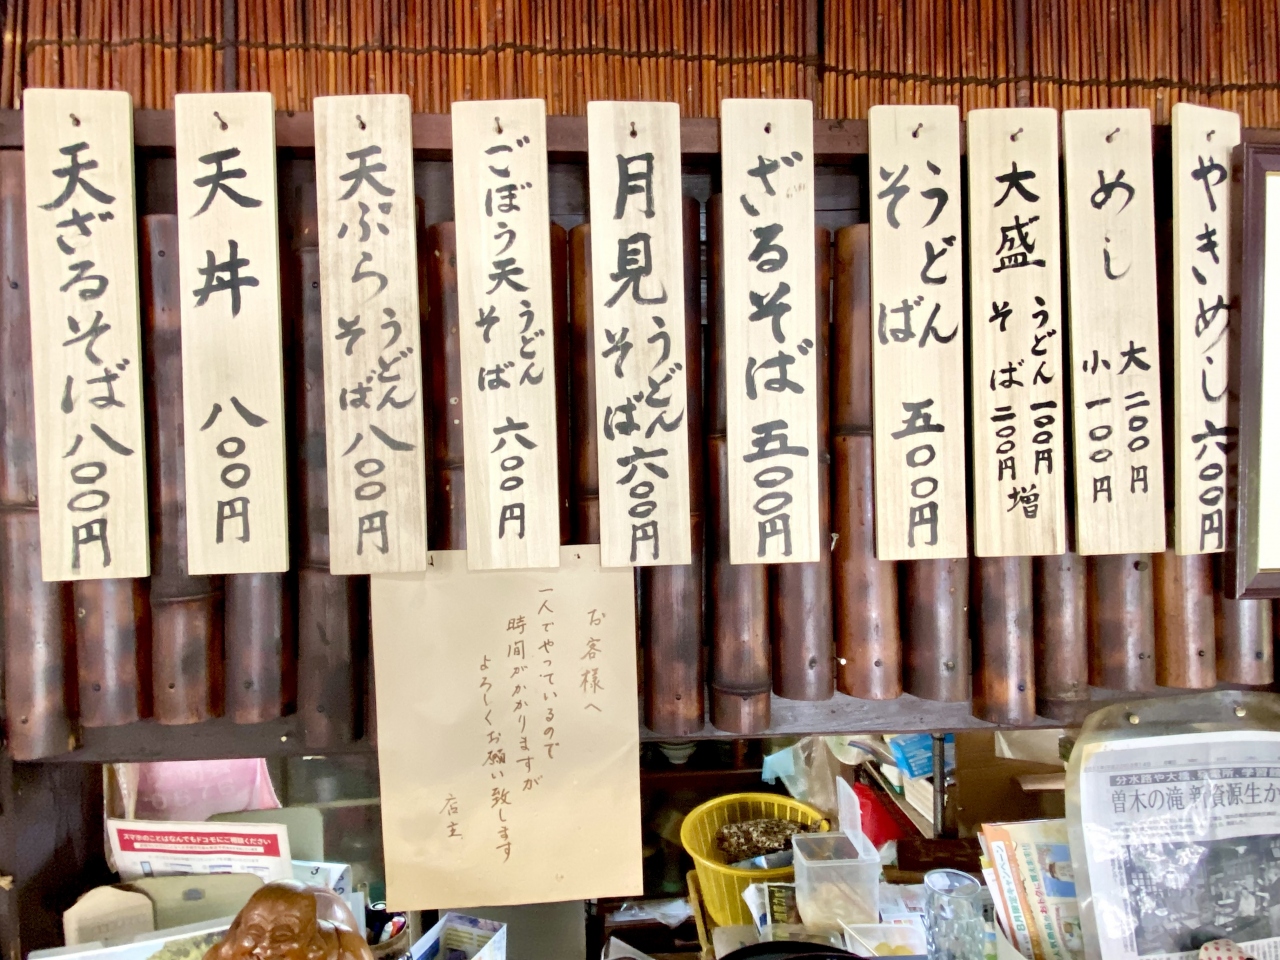 やきめし 六〇〇円
めし
大 二〇〇円
小 一〇〇円
大盛
うどん 一〇〇円
そば 二〇〇円
増
うどん
そば
五〇〇円
ざるそば 五〇〇円
月見
うどん
そば
六〇〇円
ごぼう天
うどん
そば
六〇〇円
天ぷら
うどん
そば
八〇〇円
天丼 八〇〇円
天ざるそば 八〇〇円
お客様へ
一人でやっているので
時間がかかりますが
よろしくお願い致します
店主
スマホのことはなんでもドコモにご相談ください
分水路や大橋、発電所、学習館
曽木の滝 新資源生か